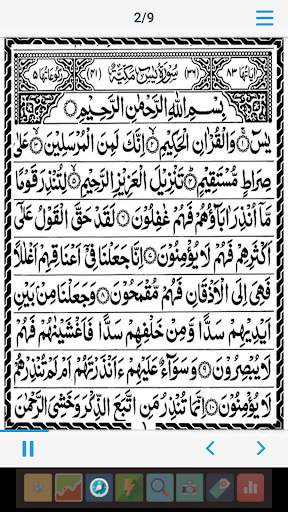 2/9
اٰیَاتُهَا ۸۳ (۳۶) سُوْرَةُ یٰسٓ مَكِّیَّةٌ (۴۱) رُكُوْعَاتُهَا ۵
بِسْمِ اللّٰهِ الرَّحْمٰنِ الرَّحِیْمِ
یٰسٓ ۝۱ وَالْقُرْاٰنِ الْحَكِیْمِ ۝۲ اِنَّكَ لَمِنَ الْمُرْسَلِیْنَ ۝۳ عَلٰی
صِرَاطٍ مُّسْتَقِیْمٍ ۝۴ تَنْزِیْلَ الْعَزِیْزِ الرَّحِیْمِ ۝۵ لِتُنْذِرَ قَوْمًا
مَّاۤ اُنْذِرَ اٰبَآؤُهُمْ فَهُمْ غٰفِلُوْنَ ۝۶ لَقَدْ حَقَّ الْقَوْلُ عَلٰۤی
اَكْثَرِهِمْ فَهُمْ لَا یُؤْمِنُوْنَ ۝۷ اِنَّا جَعَلْنَا فِیْۤ اَعْنَاقِهِمْ اَغْلٰلًا
فَهِیَ اِلَی الْاَذْقَانِ فَهُمْ مُّقْمَحُوْنَ ۝۸ وَجَعَلْنَا مِنْۢ بَیْنِ
اَیْدِیْهِمْ سَدًّا وَّمِنْ خَلْفِهِمْ سَدًّا فَاَغْشَیْنٰهُمْ فَهُمْ
لَا یُبْصِرُوْنَ ۝۹ وَسَوَآءٌ عَلَیْهِمْ ءَاَنْذَرْتَهُمْ اَمْ لَمْ تُنْذِرْهُمْ
لَا یُؤْمِنُوْنَ ۝۱۰ اِنَّمَا تُنْذِرُ مَنِ اتَّبَعَ الذِّكْرَ وَخَشِیَ الرَّحْمٰنَ